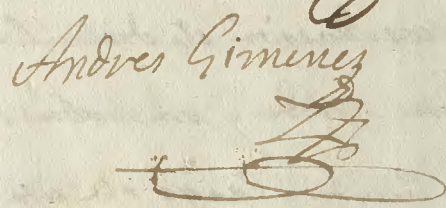 Andres Gimenez